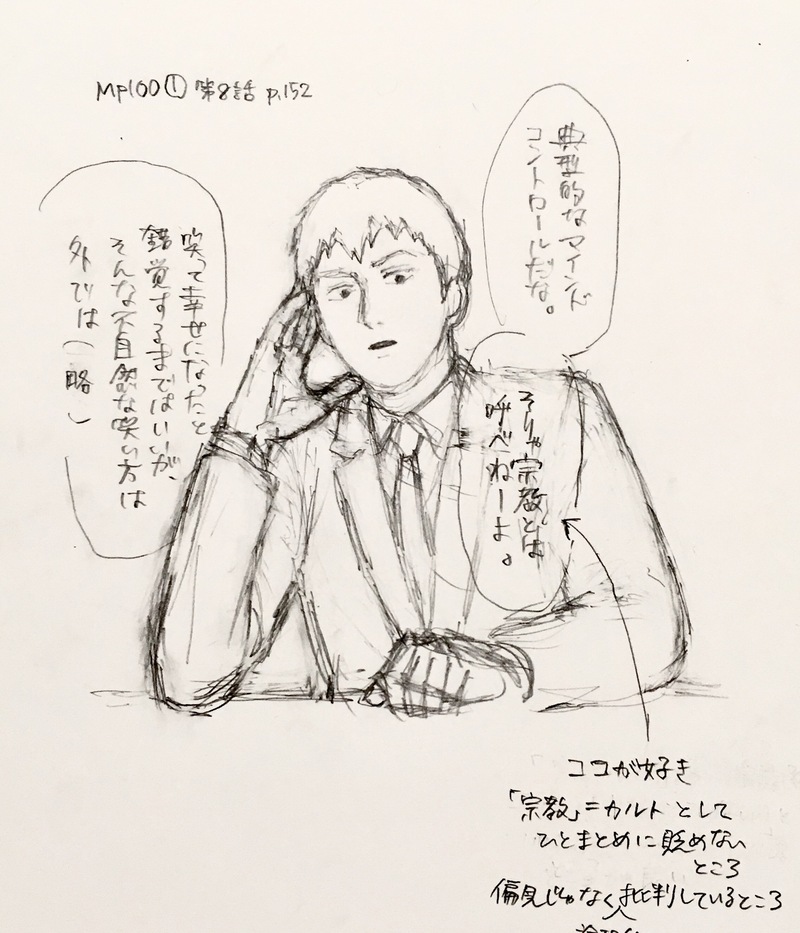 MP100① 第8話 p.152
典型的なマインド
コントロールだな。
そりゃ宗教とは
呼べねーよ。
笑って幸せになったと
錯覚するまではいいが、
そんな不自然な笑い方は
外では(略)
ココが好き
「宗教」=カルト として
ひとまとめに貶めない
ところ
偏見じゃなく批判しているところ